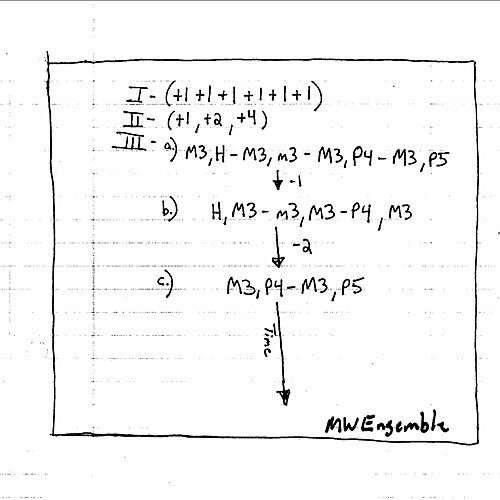 I - (+1 +1 +1 +1 +1 +1)
II - (+1, +2, +4)
III - a) M3, H - M3, m3 - M3, P4 - M3, P5
-1
b.) H, M3 - m3, M3 - P4, M3
-2
c.) M3, P4 - M3, P5
Time
MWEnsemble